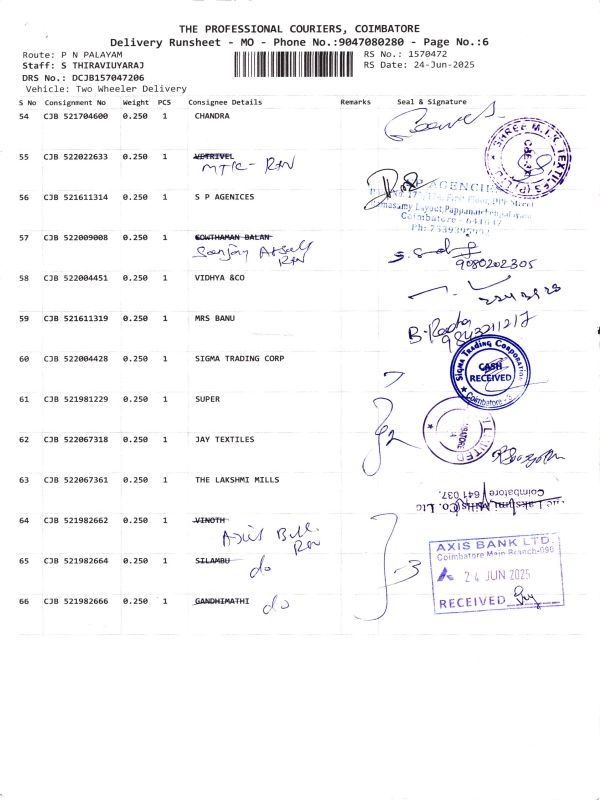 THE PROFESSIONAL COURIERS, COIMBATORE
Delivery Runsheet - MO - Phone No.:9047080280 - Page No.:6
Route: P N PALAYAM
RS No.: 1570472
Staff: S THIRAVIUYARAJ
RS Date: 24-Jun-2025
DRS No.: DCJB157047206
Vehicle: Two Wheeler Delivery
S No Consignment No Weight PCS Consignee Details Remarks Seal & Signature
54 CJB 521704600 0.250 1 CHANDRA
SHREE M.T.K TEXTILES (P) LTD
55 CJB 522022633 0.250 1 VETRIVEL
MTK - RN
56 CJB 521611314 0.250 1 S P AGENICES
AGENCIES
Coimbatore - 641037
57 CJB 522009008 0.250 1 GOWTHAMAN BALAN
Sanjay
RN
9080202305
58 CJB 522004451 0.250 1 VIDHYA &CO
59 CJB 521611319 0.250 1 MRS BANU
9843211217
60 CJB 522004428 0.250 1 SIGMA TRADING CORP
SIGMA TRADING CORPORATION
CASH
RECEIVED
Coimbatore
61 CJB 521981229 0.250 1 SUPER
62 CJB 522067318 0.250 1 JAY TEXTILES
LIMITED
63 CJB 522067361 0.250 1 THE LAKSHMI MILLS
The Lakshmi Mills Co. Ltd
Coimbatore
641 037.
64 CJB 521982662 0.250 1 VINOTH
Axis
RN
65 CJB 521982664 0.250 1 SILAMBU
do
3
AXIS BANK LTD.
Coimbatore Main Branch-090
24 JUN 2025
RECEIVED
66 CJB 521982666 0.250 1 GANDHIMATHI
do